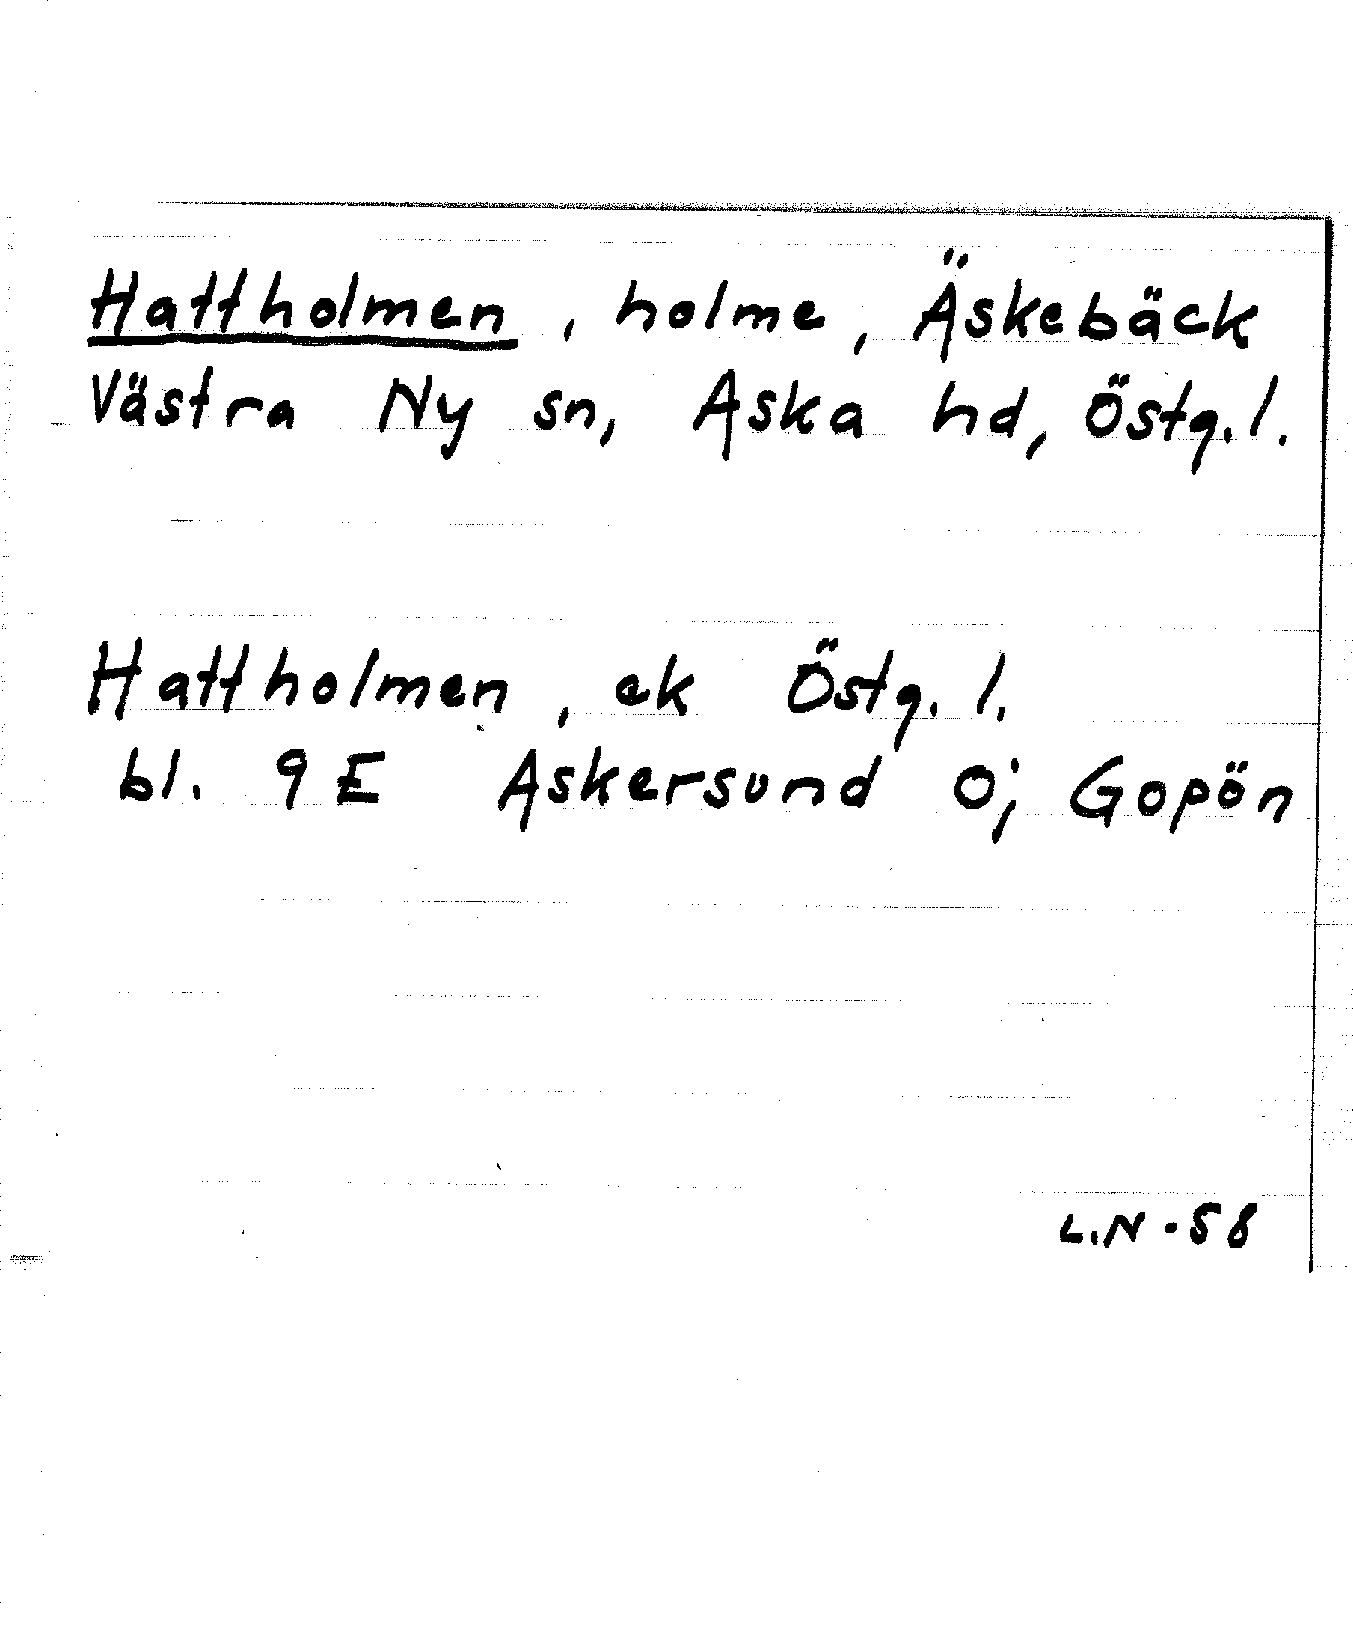 Hattholmen, holme, Äskebäck
Västra Ny sn, Aska hd, Östg. l.
Hattholmen, ek Östg. l.
bl. 9 E Askersund 0j Gopön
L.N -58